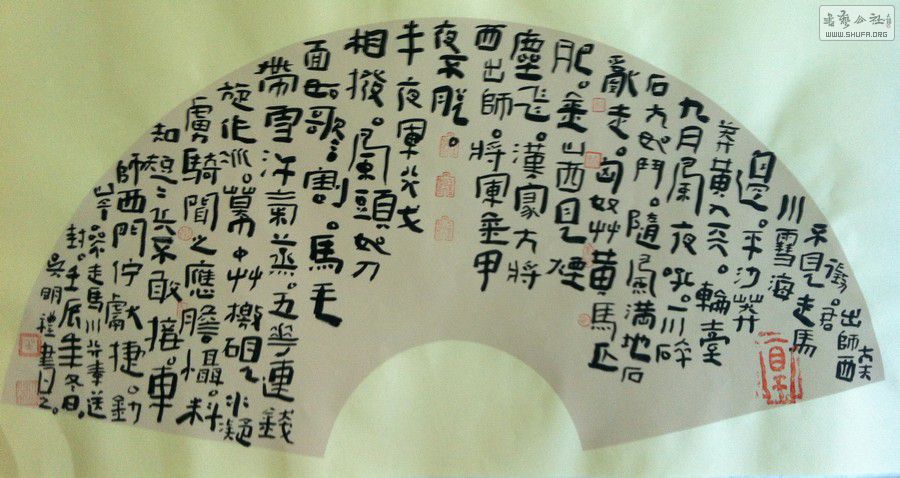 大夫
出師西
君
不見走馬
川雪海
邊。平沙莽
莽黃入天。輪臺
九月風夜吼。一川碎
石大如鬥。隨風滿地石
亂走。匈奴草黃馬正
肥。金山西見煙
塵飛。漢家大將
西出師。將軍金甲
夜不脫。
半夜軍行戈
相撥。風頭如刀
面如歌。割。馬毛
帶雪汗氣蒸。五花連錢
旋作冰。幕中草檄硯水凝
虜騎聞之應膽懾。料
知短兵不敢接。車
師西門佇獻捷。
岑參走馬川行奉送
封。壬辰年冬日。
吳明禮書之。
書藝公社
WWW.SHUFA.ORG